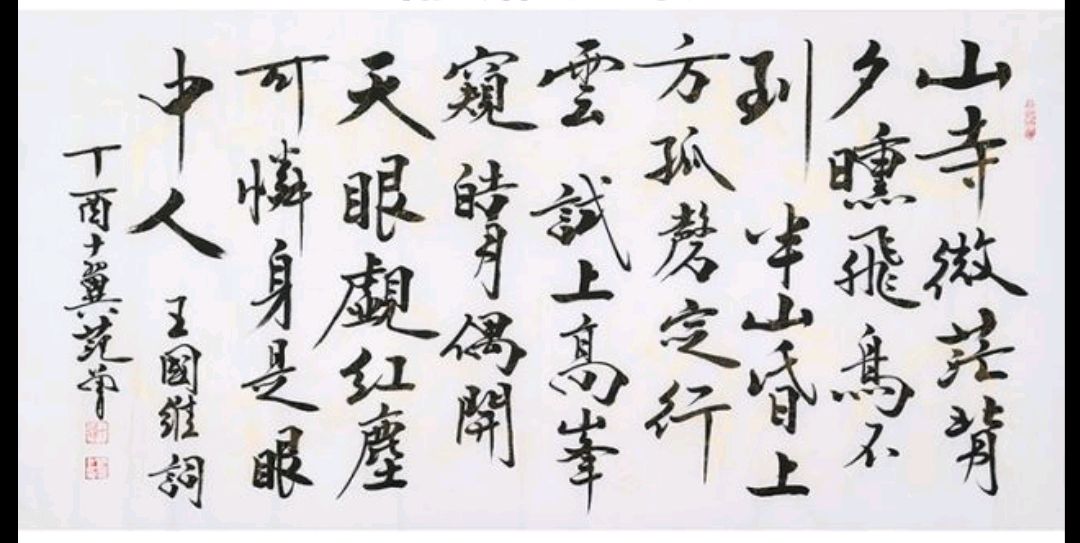 山寺微茫背
夕曛飛鳥不
到半山昏上
方孤磬定行
雲試上高峯
窺皓月偶開
天眼覷紅塵
可憐身是眼
中人 王國維詞
丁酉十翼范曾